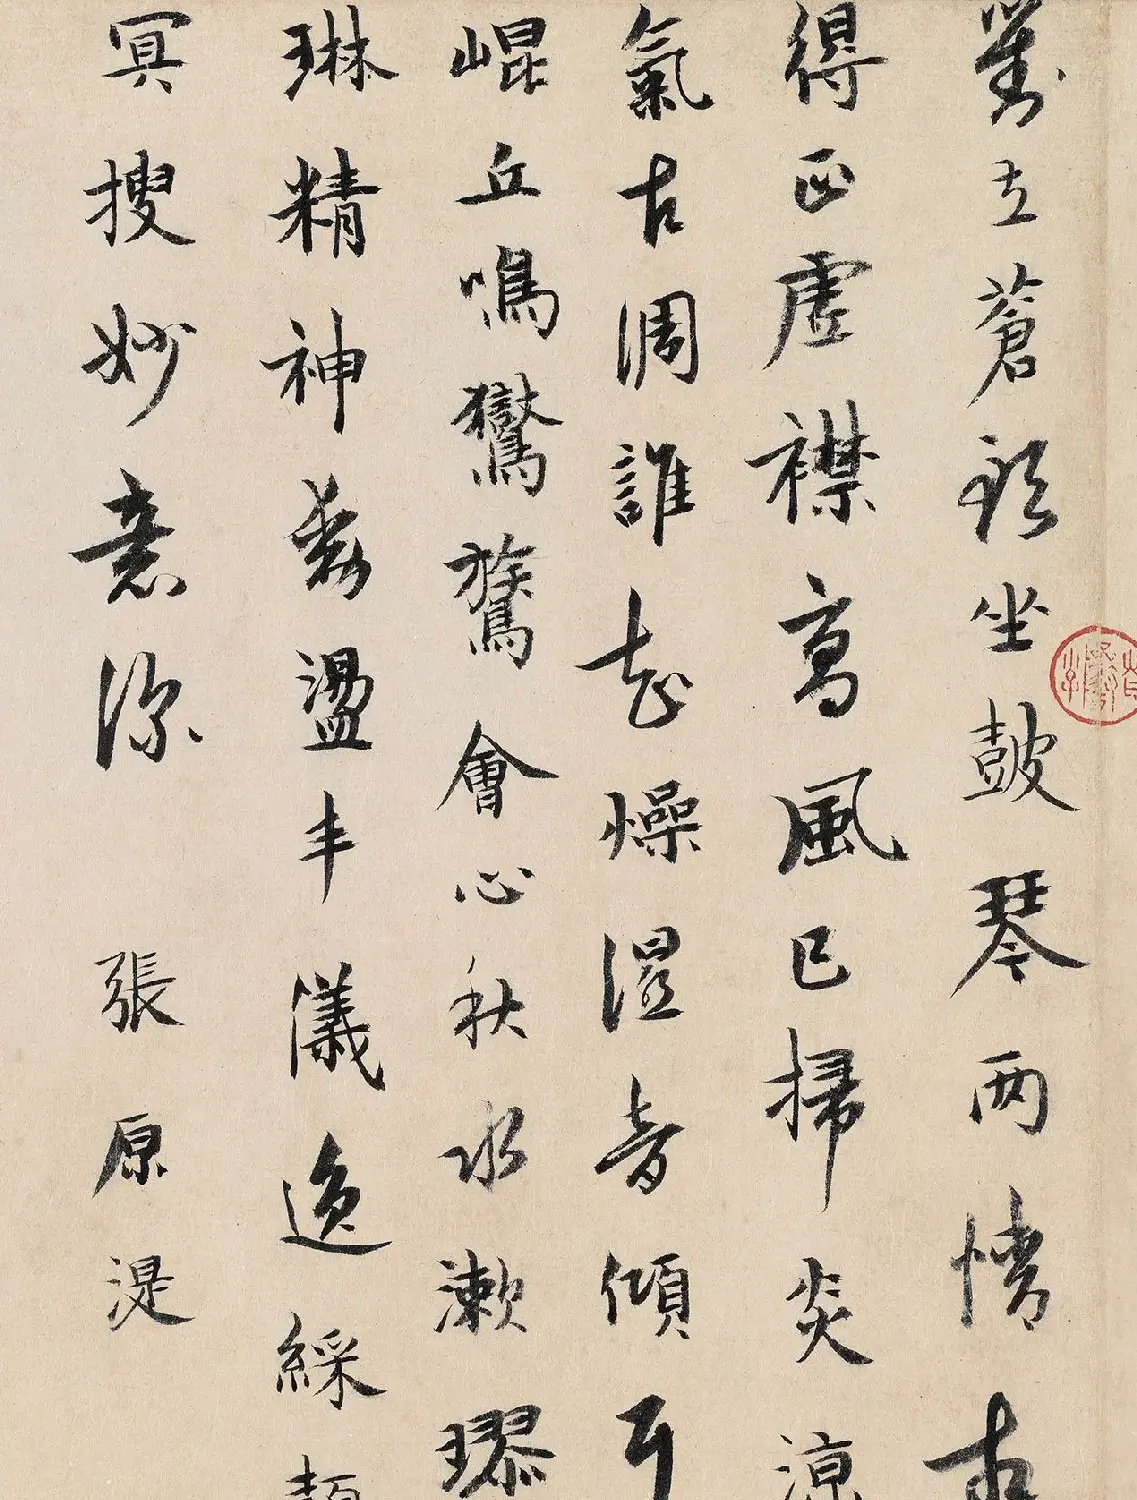 對立蒼形坐鼓琴兩情
得正虛襟高風已掃炎涼
氣古調誰知燥濕音傾耳
崐丘鳴鸑鷟會心秋水漱璆
琳精神發盪丰儀逸綵
冥搜妙意深 張原湜